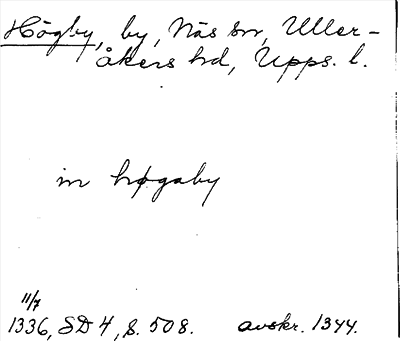 Högby, by, Näs sn, Uller-
åkers hd, Upps. l.
in høgaby
11/7
1336, SD 4, s. 508. avskr. 1344.